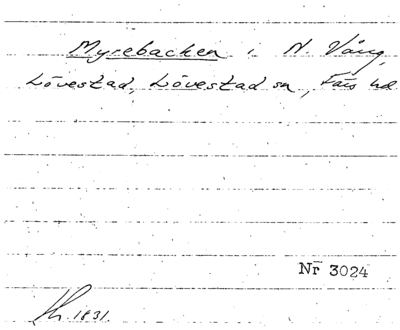 Myrebacken i N. Vång,
Lövestad, Lövestad sn, Färs hd
Nr 3024
1831